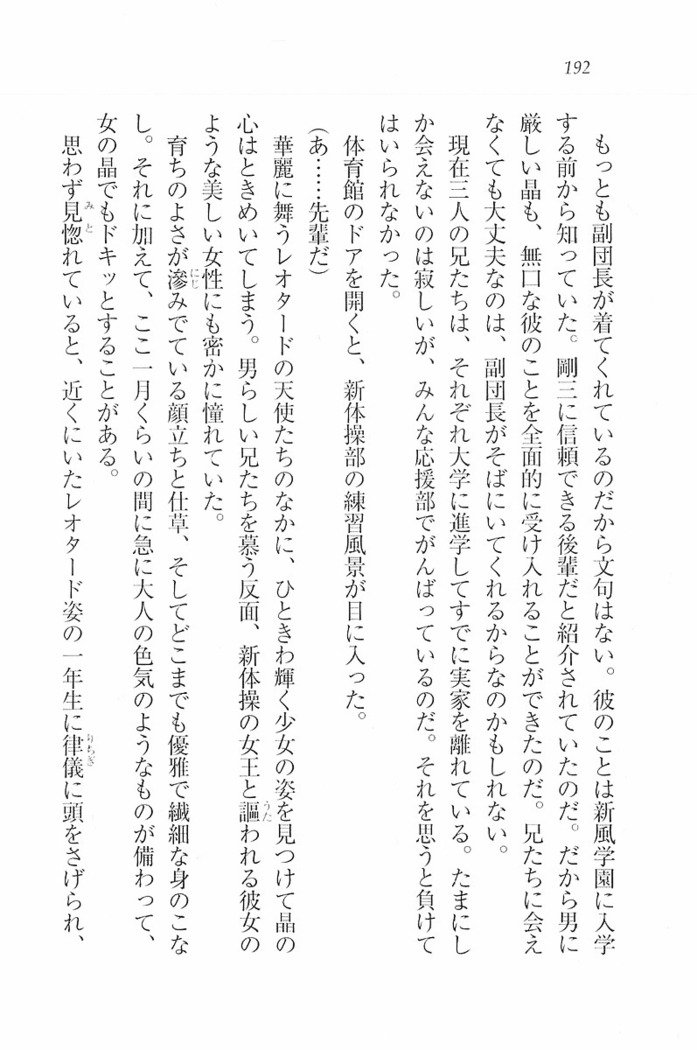 192
もっとも副団長が着てくれているのだから文句はない。彼のことは新風学園に入学
する前から知っていた。剛三に信頼できる後輩だと紹介されていたのだ。だから男に
厳しい晶も、無口な彼のことを全面的に受け入れることができたのだ。兄たちに会え
なくても大丈夫なのは、副団長がそばにいてくれるからなのかもしれない。
現在三人の兄たちは、それぞれ大学に進学してすでに実家を離れている。たまにし
か会えないのは寂しいが、みんな応援部でがんばっているのだ。それを思うと負けて
はいられなかった。
体育館のドアを開くと、新体操部の練習風景が目に入った。
(あ……先輩だ)
華麗に舞うレオタードの天使たちのなかに、ひときわ輝く少女の姿を見つけて晶の
心はときめいてしまう。男らしい兄たちを慕う反面、新体操の女王と謳われる彼女の
ような美しい女性にも密かに憧れていた。
育ちのよさが滲みでている顔立ちと仕草、そしてどこまでも優雅で繊細な身のこな
し。それに加えて、ここ一月くらいの間に急に大人の色気のようなものが備わって、
女の晶でもドキッとすることがある。
思わず見惚れていると、近くにいたレオタード姿の一年生に律儀に頭をさげられ、